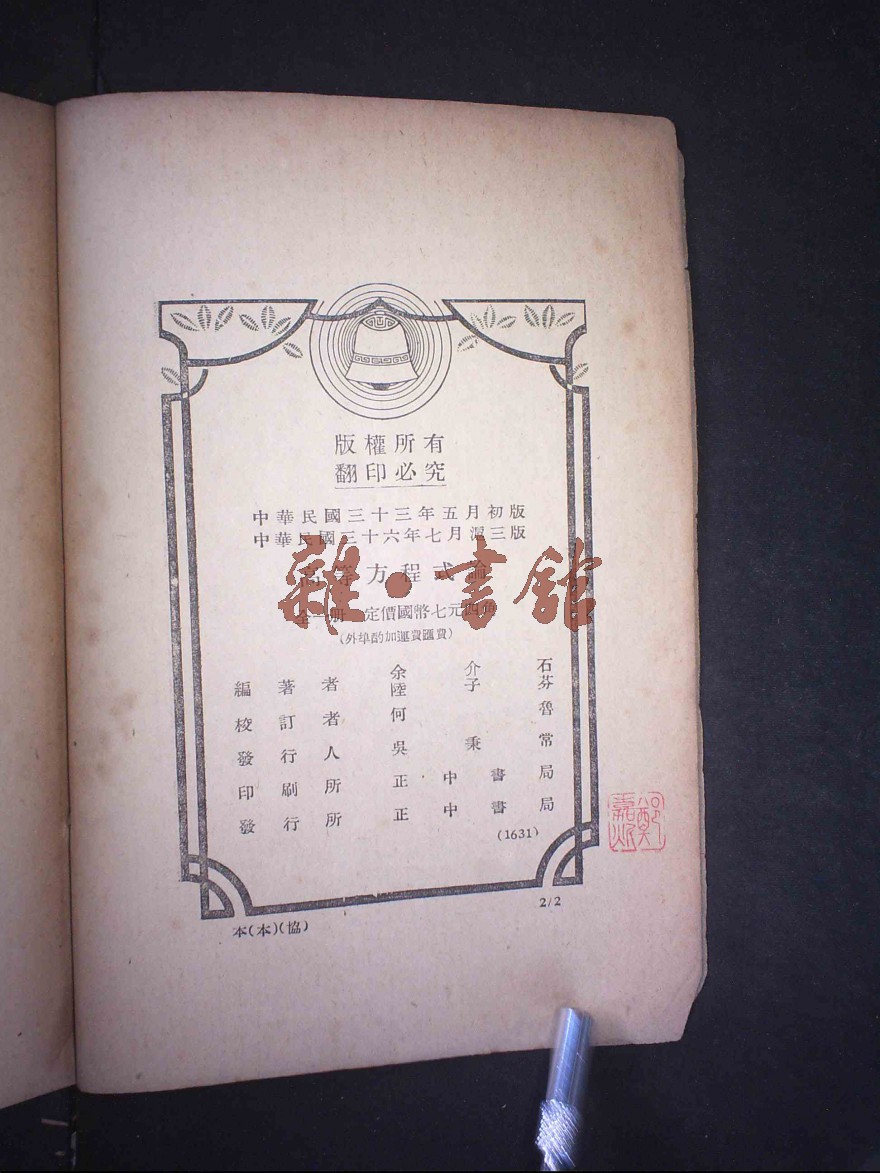 版權所有
翻印必究
中華民國三十三年五月初版
中華民國三十六年七月滬三版
高等方程式論
全一册 定價國幣七元四角
(外埠酌加運費匯費)
編著者 余介石
陸子芬
校訂者 何魯
發行人 吳秉常
印刷所 正中書局
發行所 正中書局
(1631)
2/2
本(本)(協)
雜·書館